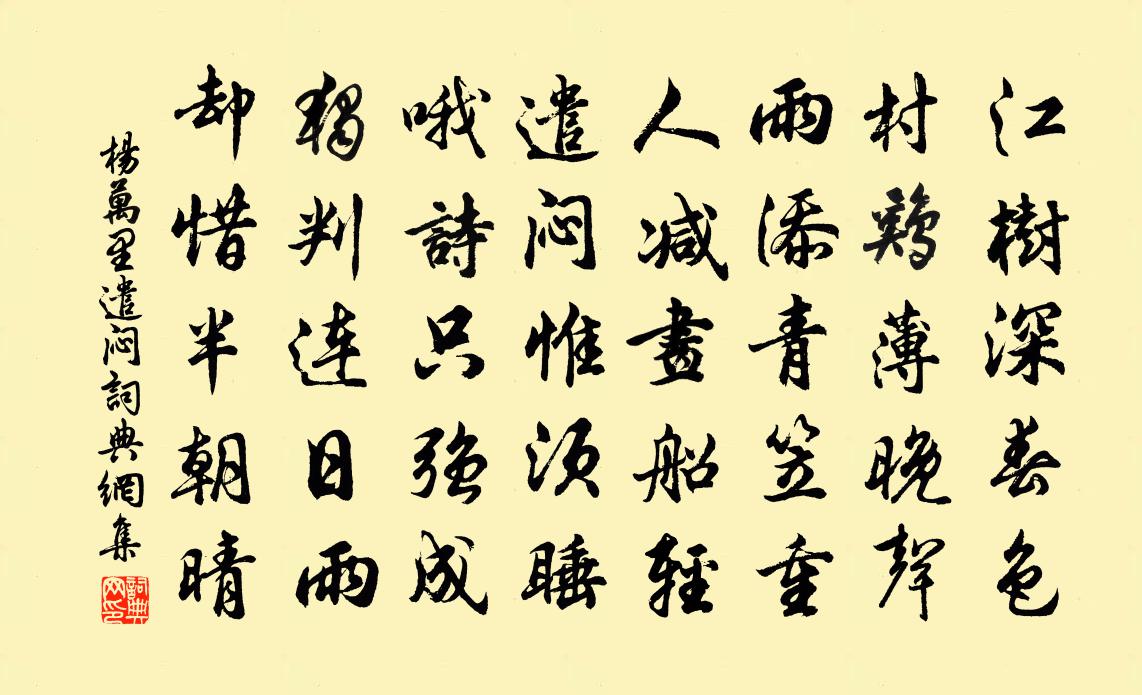 江樹深春色
村鷄薄晚聲
雨添青笠重
人減畫船輕
遣悶惟須睡
哦詩只強成
獨判連日雨
却惜半朝晴
楊萬里遣悶詞典網集
詞典网印